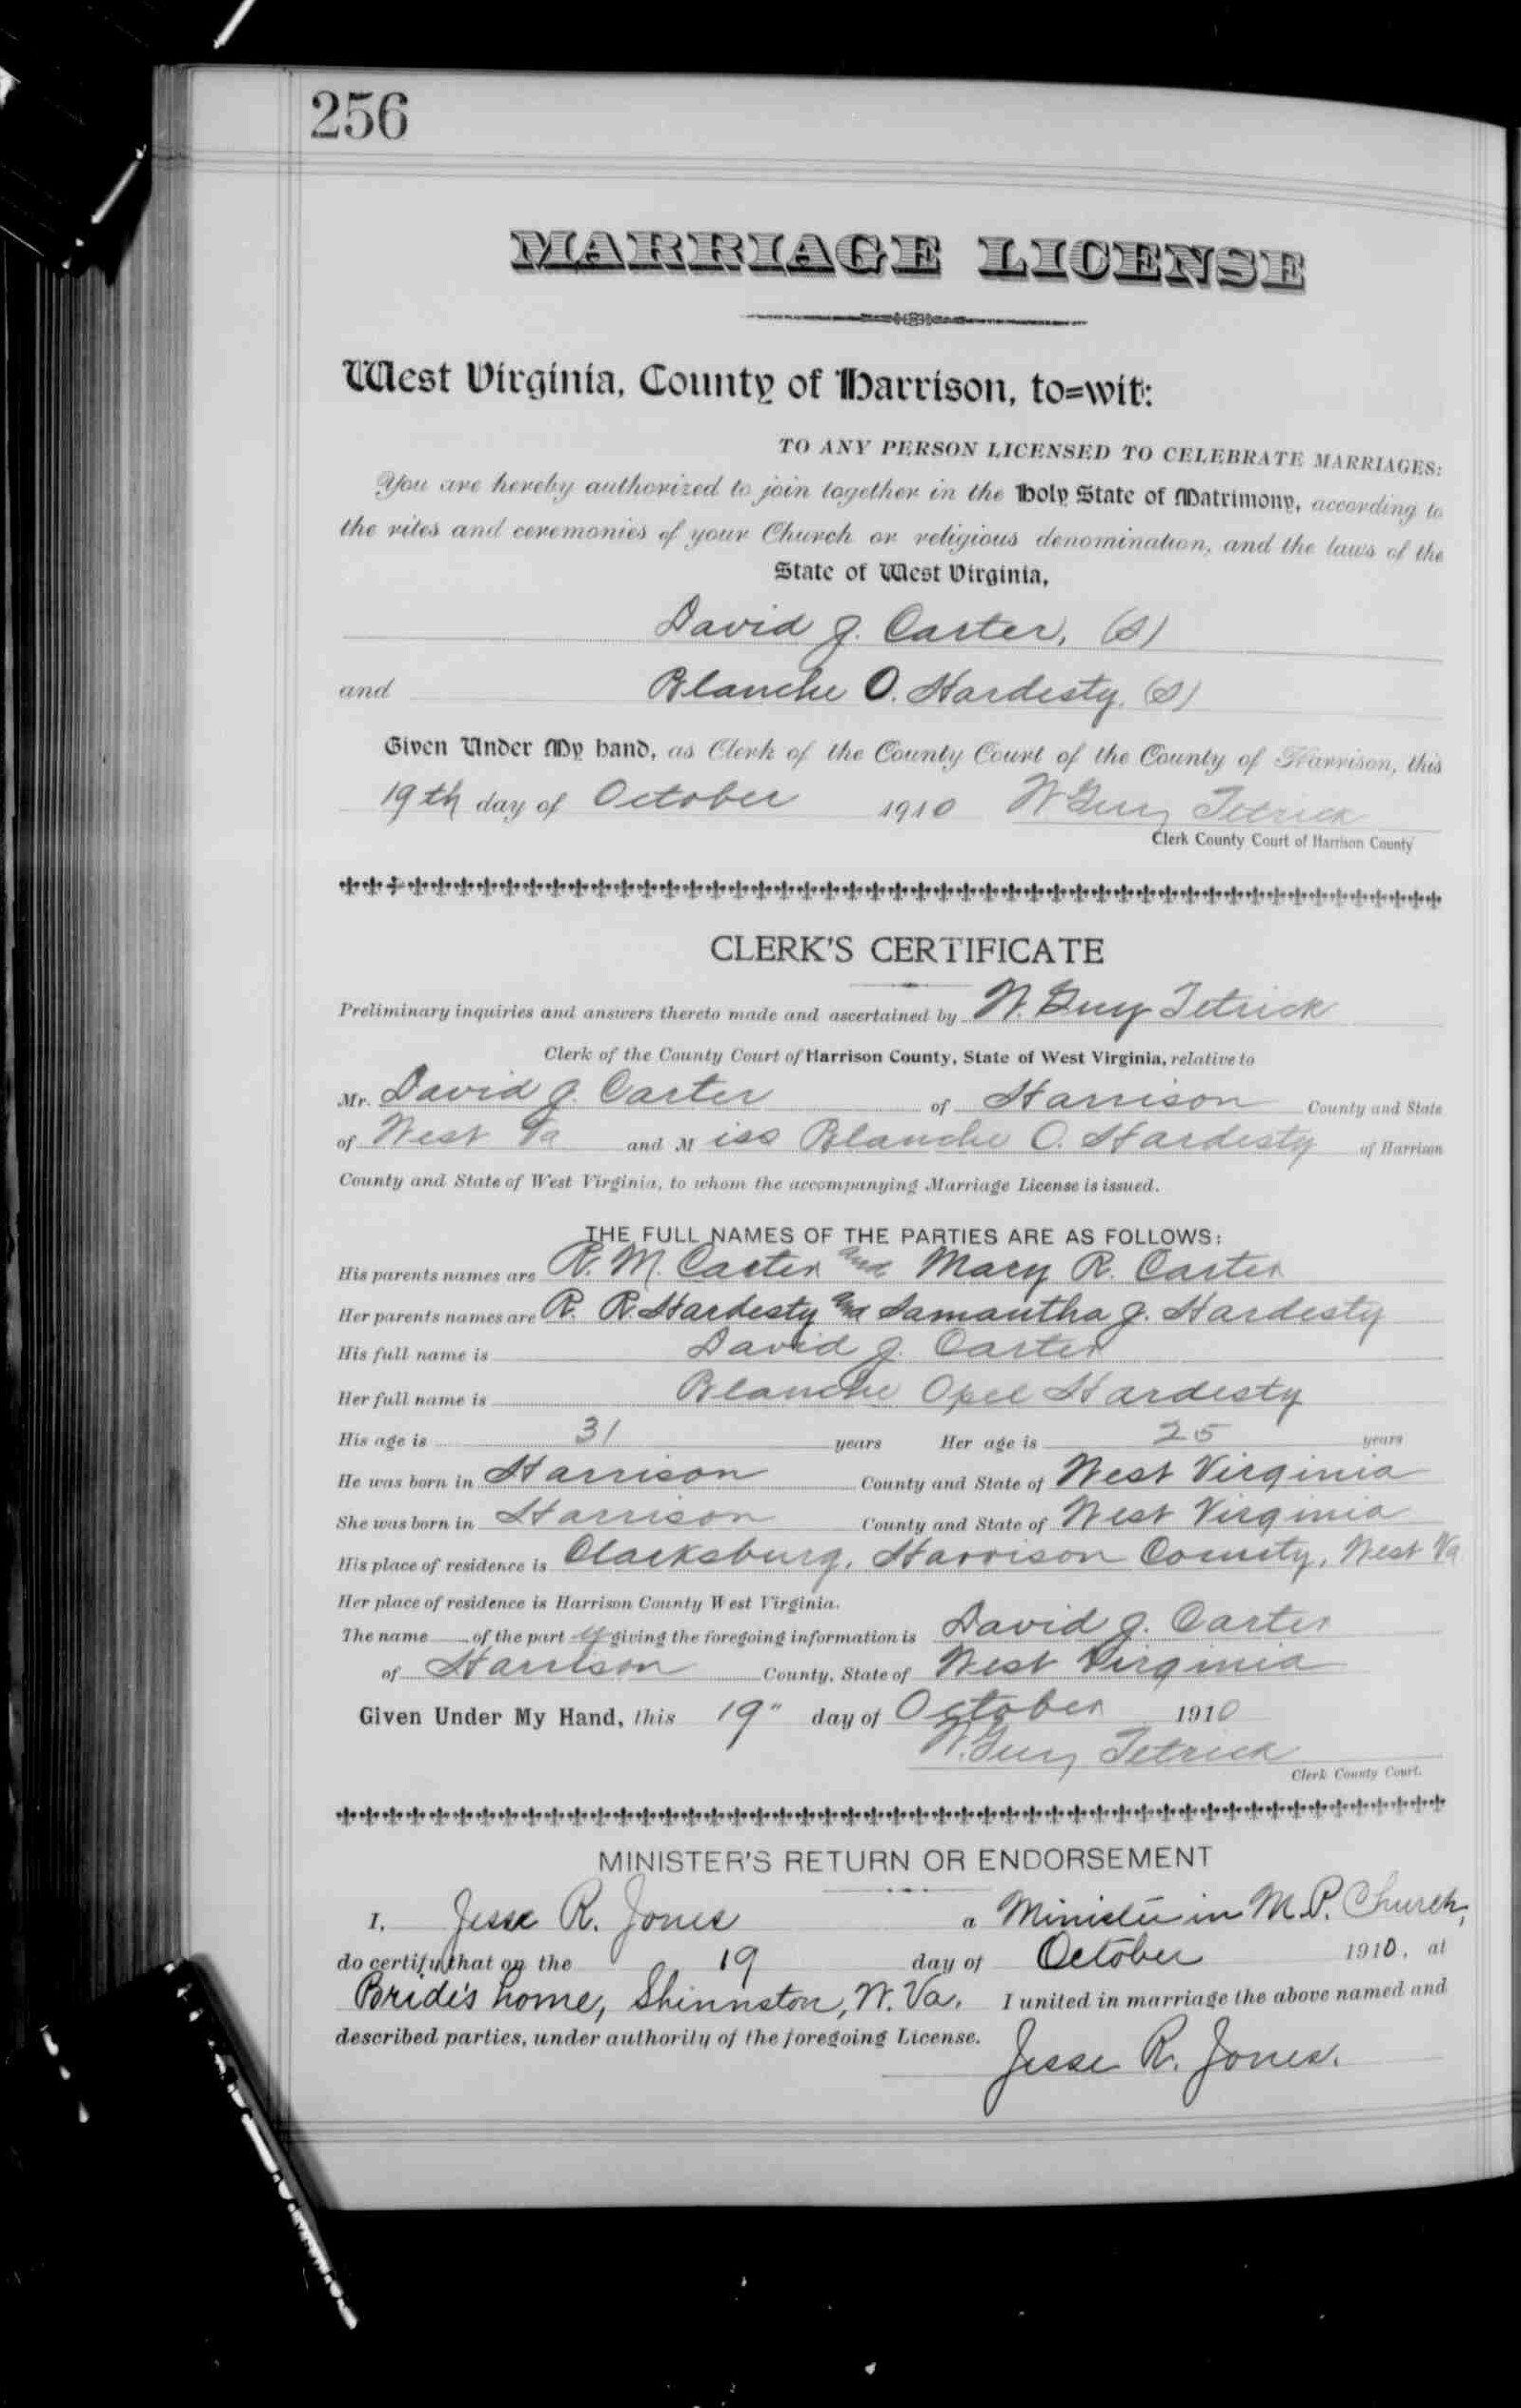 256
MARRIAGE LICENSE
West Virginia, County of Harrison, to=wit:
TO ANY PERSON LICENSED TO CELEBRATE MARRIAGES:
You are hereby authorized to join together in the Holy State of Matrimony, according to
the rites and ceremonies of your Church or religious denomination, and the laws of the
State of West Virginia,
David J. Carter, (S)
and Blanche O. Hardesty, (S)
Given Under My hand, as Clerk of the County Court of the County of Harrison, this
19th day of October 1910 W Guy Tetrick
Clerk County Court of Harrison County
CLERK'S CERTIFICATE
Preliminary inquiries and answers thereto made and ascertained by W. Guy Tetrick
Clerk of the County Court of Harrison County, State of West Virginia, relative to
Mr. David J. Carter of Harrison County and State
of West Va and Miss Blanche O. Hardesty of Harrison
County and State of West Virginia, to whom the accompanying Marriage License is issued.
THE FULL NAMES OF THE PARTIES ARE AS FOLLOWS:
His parents names are R. M. Carter and Mary R. Carter
Her parents names are R. R. Hardesty and Samantha J. Hardesty
His full name is David J. Carter
Her full name is Blanche Opel Hardesty
His age is 31 years Her age is 25 years
He was born in Harrison County and State of West Virginia
She was born in Harrison County and State of West Virginia
His place of residence is Clarksburg, Harrison County, West Va
Her place of residence is Harrison County West Virginia.
The name of the party giving the foregoing information is David J. Carter
of Harrison County, State of West Virginia
Given Under My Hand, this 19" day of October 1910
W. Guy Tetrick
Clerk County Court.
MINISTER'S RETURN OR ENDORSEMENT
I, Jesse R. Jones a Minister in M. P. Church,
do certify that on the 19 day of October 1910, at
Bride's home, Shinnston, W. Va. I united in marriage the above named and
described parties, under authority of the foregoing License.
Jesse R. Jones.